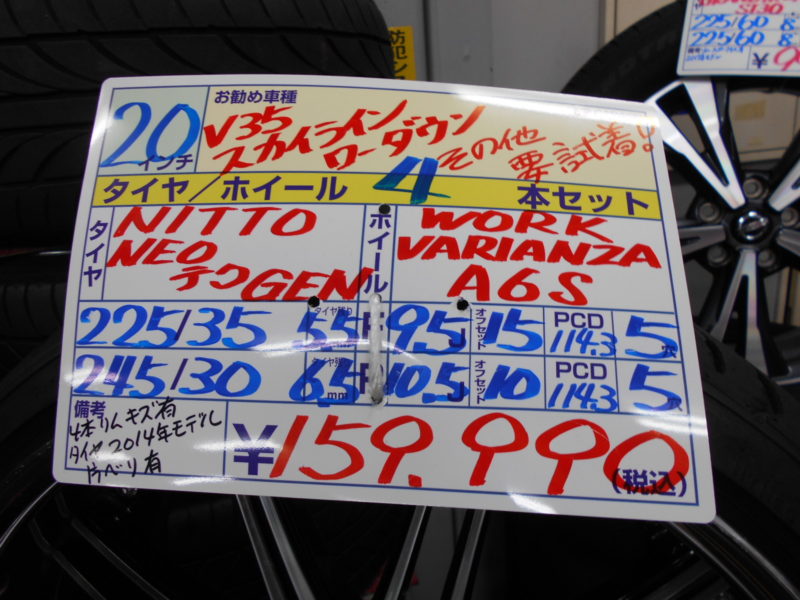 防犯
S130
225/60
225/60
備考
¥
20インチ
お勧め車種
V35
スカイライン
ローダウン
その他
要試着!!
タイヤ/ホイール 4 本セット
タイヤ
NITTO
NEO
テクGEN
ホイール
WORK
VARIANZA
A6S
225/35 5.5 F 9.5J オフセット 15 PCD 114.3 5穴
245/30 6.5mm 10.5J オフセット 10 PCD 114.3 5穴
備考
4本リムキズ有
タイヤ2014年モデル
片ベリ有
¥159.990
(税込)